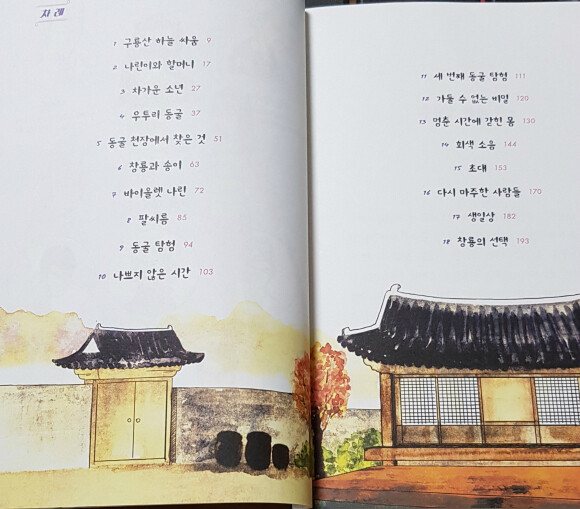 차례
1 구룡산 하늘 싸움 9
2 나린이와 할머니 17
3 차가운 소년 27
4 우투리 동굴 37
5 동굴 천장에서 찾은 것 51
6 창룡과 송이 63
7 바이올렛 나린 72
8 팔씨름 85
9 동굴 탐험 94
10 나쁘지 않은 시간 103
11 세 번째 동굴 탐험 111
12 가둘 수 없는 비밀 120
13 멈춘 시간에 갇힌 몸 130
14 회색 소음 144
15 초대 153
16 다시 마주한 사람들 170
17 생일상 182
18 창룡의 선택 193